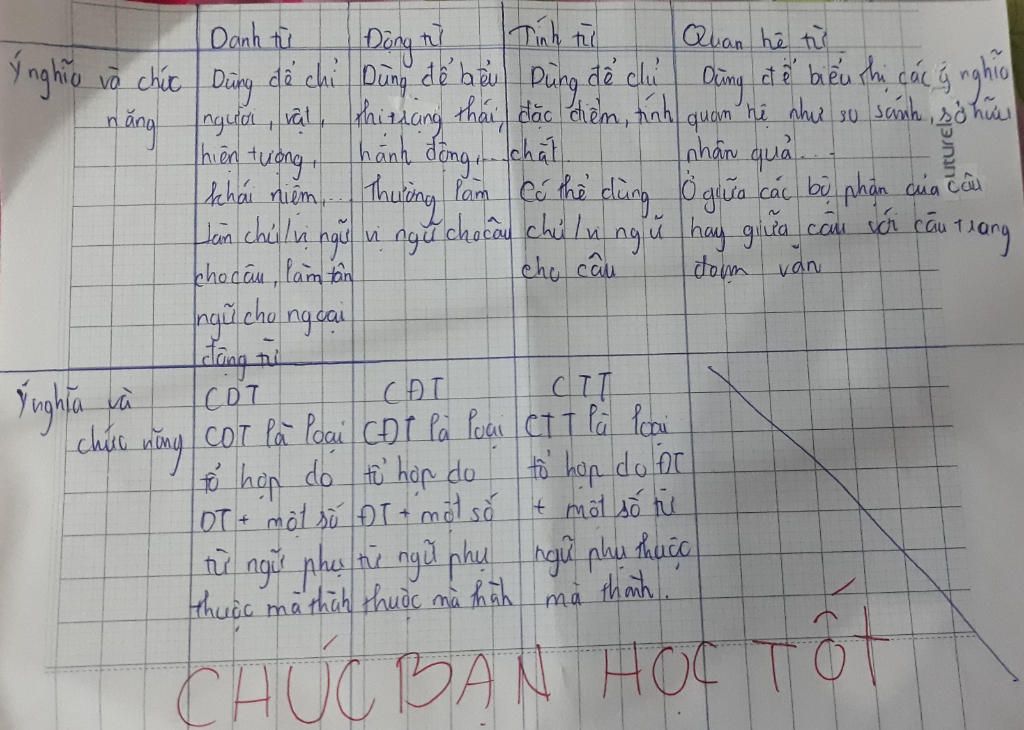 Danh từ Động từ Tính từ Quan hệ từ
Ý nghĩa và chức Dùng để chỉ Dùng để biểu Dùng để chỉ Dùng để biểu thị các ý nghĩa
năng người, vật, thị trạng thái, đặc điểm, tính quan hệ như so sánh, sở hữu
hiện tượng, hành động,... chất nhân quả...
khái niệm,... Thường làm Có thể dùng Ở giữa các bộ phận của câu
Làm chủ/vị ngữ vị ngữ cho câu chủ/vị ngữ hay giữa câu với câu trong
cho câu, làm tân cho câu đoạn văn
ngữ cho ngoại
động từ
Ý nghĩa và CDT CĐT CTT
chức năng CDT là loại CĐT là loại CTT là loại
tổ hợp do tổ hợp do tổ hợp do ĐT
DT + một số ĐT + một số + một số từ
từ ngữ phụ từ ngữ phụ ngữ phụ thuộc
thuộc mà thành thuộc mà thành mà thành.
CHÚC BẠN HỌC TỐT